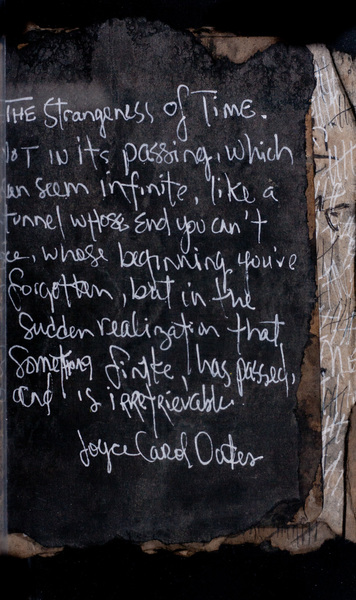 THE Strangeness of Time.
Not in its passing, which
can seem infinite, like a
tunnel whose end you can't
see, whose beginning you've
forgotten, but in the
sudden realization that
something finite, has passed,
and is irretrievable.
Joyce Carol Oates